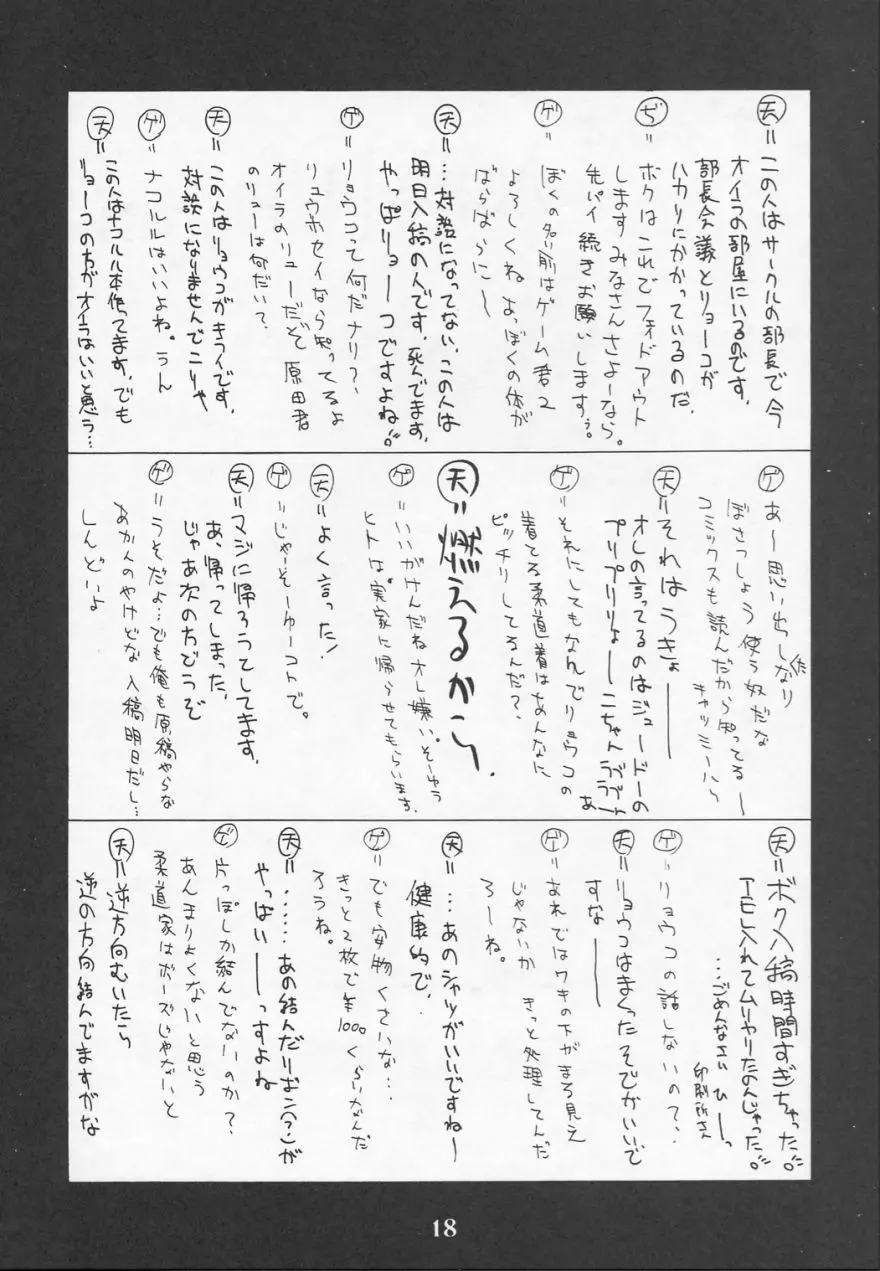 天=この人はサークルの部長で今
オイラの部屋にいるのです。
部長会議とリョーコが
ハカリにかかっているのだ。
ぢ=ボクはこれでフェイドアウト
します みなさんさよーなら。
先パイ続きお願いしますぅ。
ゲ=ぼくの名前はゲーム君2
よろしくね あっぼくの体が
ばらばらにー
天=…対談になってない、この人は
明日入稿の人です。死んでます。
やっぱりョーコですよね。
ゲ=リョウコって何だナリ?、
リュウホセイなら知ってるよ
オイラのリューだぞ 原田君
のリューは何だい?
天=この人はリョウコがキライです。
対談になりませんでこりゃ
ゲ=ナコルルはいいよね。うん
天=この人はナコルル本作ってます。でも
リョーコの方がオイラはいいと思う…
ゲ=あー思い出しなり くた
ぼさつしょう使う奴だな
コミックスも読んだから知ってるー
キャッミーハら
天=それはうきょーーー
オレの言ってるのはジュードーの
プリプリりょーこちゃんララララー
あ
ゲ=それにしてもなんでリョウコの
着てる柔道着はあんなに
ピッチリしてるんだ?、
天=燃えるから、
ゲ=いいがけんだねオレ嫌い。そーゆう
ヒトは。実家に帰らせてもらいます。
天=よく言った!
ゲ=じゃーそーゆーコトで。
天=マジに帰ろうてしてます。
あ、帰ってしまった、
じゃあ次の方どうぞ
ゲ=うそだよ…でも俺も原稿やらな
あかんのやけどな 入稿明日だし…
しんどいよ
天=ボク入稿時間すぎちゃった。
TEL入れてムリヤリたのんじゃった。
…ごめんなさい ひーっ
印刷所さん
ゲ=リョウコの話しないので?、
天=リョウコはまくったそでがいいで
すなーー
ゲ=あれではワキの下がまる見え
じゃないか きっと処理してんだ
ろーね。
天=…あのシャツがいいですねー
健康的で、
ゲ=でも安物くさいな…
きっと2枚で¥1000くらいなんだ
ろうね。
天=……あの結んだりぼん(?)が
やっぱいーーっすよね
ゲ=片っぽしか結んでないのか?、
あんまりよくないと思う
柔道家はボーズじゃないと
天=逆方向むいたら
逆の方向結んでますがな
18